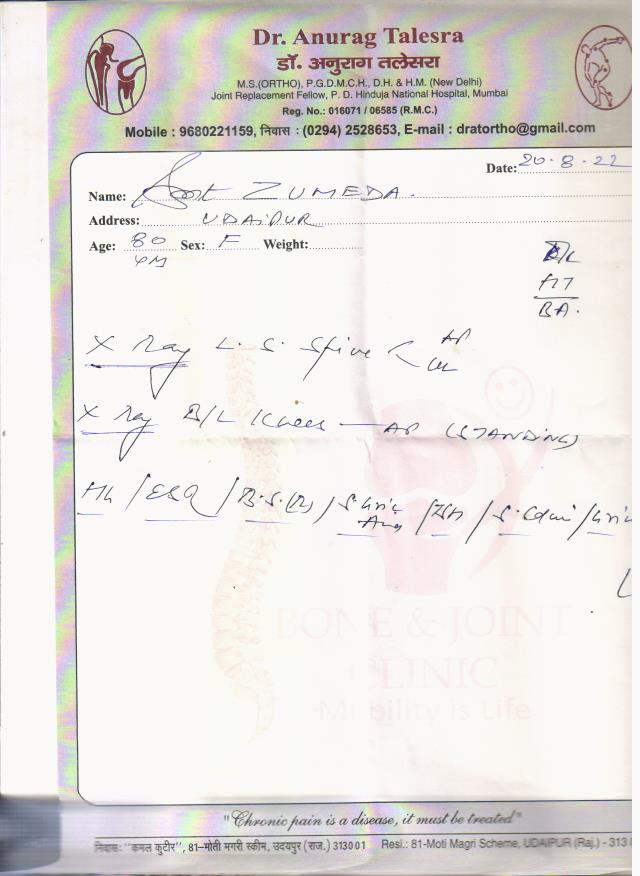 Dr. Anurag Talesra
डॉ. अनुराग तलेसरा
M.S.(ORTHO), P.G.D.M.C.H., D.H. & H.M. (New Delhi)
Joint Replacement Fellow, P. D. Hinduja National Hospital, Mumbai
Reg. No.: 016071 / 06585 (R.M.C.)
Mobile : 9680221159, निवास : (0294) 2528653, E-mail : dratortho@gmail.com
Date: 20.8.22
Name: ZUMEDA.
Address: UDAIPUR
Age: 80 Sex: F Weight:
BA.
X Ray L. S. Spine < AP
X Ray B/L Knees — AP (STANDING)
/ ESR / B.S.(R) / S. Uric / / S. /
BONE & JOINT
CLINIC
Mobility is Life
"Chronic pain is a disease, it must be treated"
निवासः "कमल कुटीर", 81-मोती मगरी स्कीम, उदयपुर (राज.) 313001 Resi.: 81-Moti Magri Scheme, UDAIPUR (Raj.) - 313